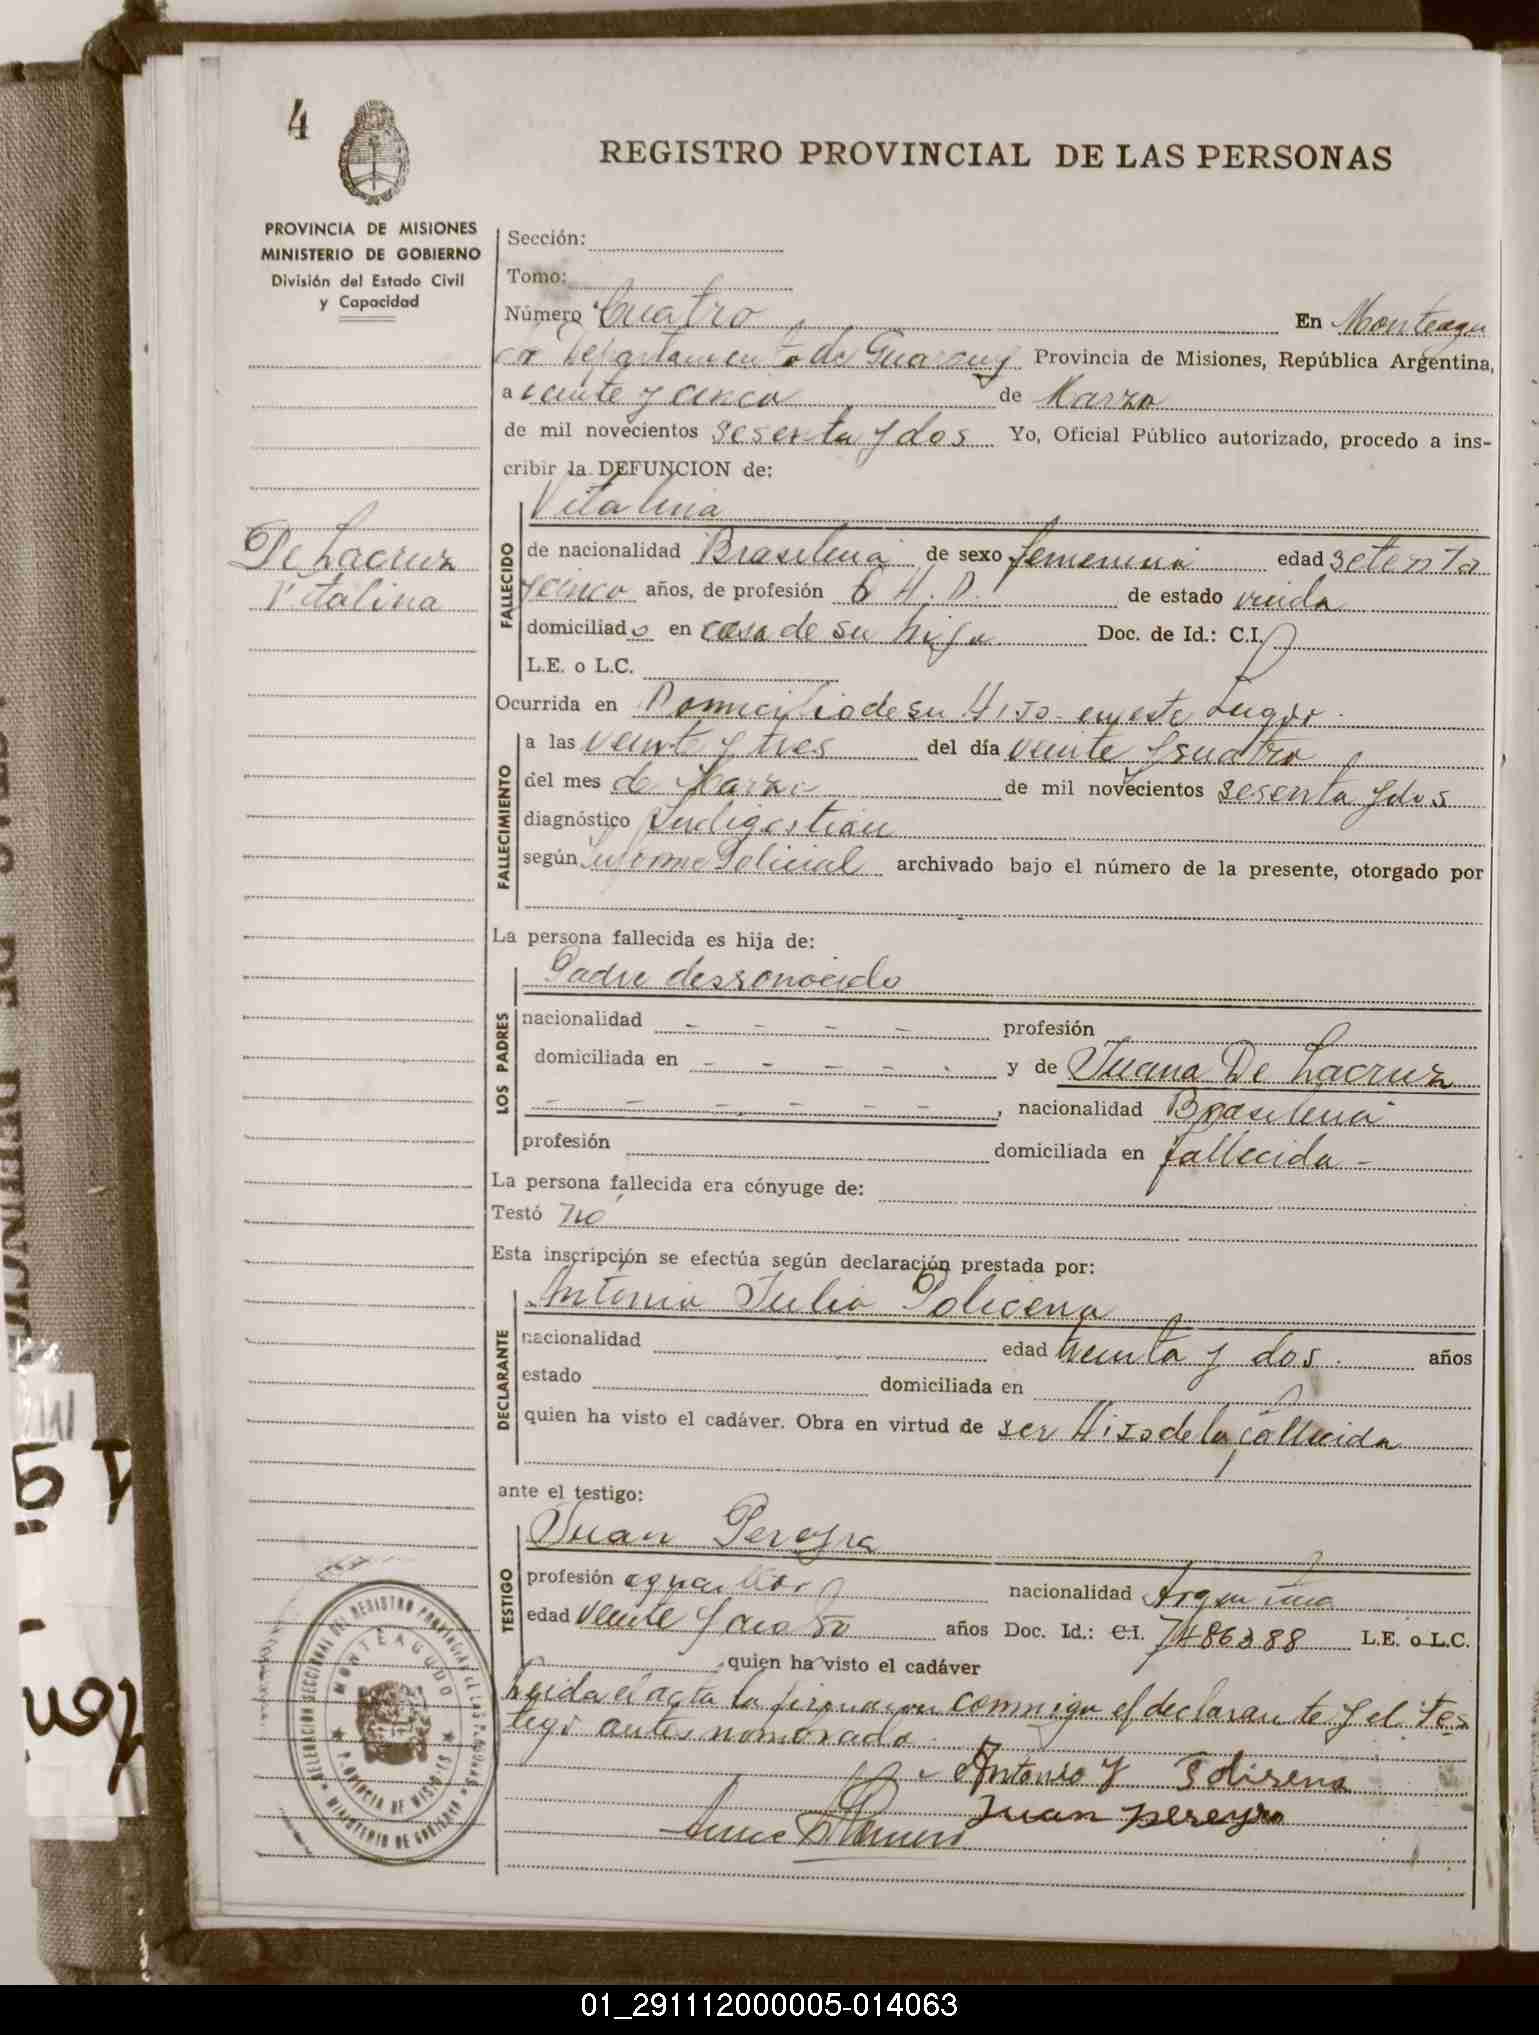 4
REGISTRO PROVINCIAL DE LAS PERSONAS
PROVINCIA DE MISIONES
MINISTERIO DE GOBIERNO
División del Estado Civil
y Capacidad
Sección:
Tomo:
Número Cuatro En Monteagu
do Departamento de Guarany Provincia de Misiones, República Argentina,
a veinte y cinco de Marzo
de mil novecientos sesenta y dos Yo, Oficial Público autorizado, procedo a ins-
cribir la DEFUNCION de:
Vitalina
De Lacruz
Vitalina
FALLECIDO
de nacionalidad Brasilena de sexo femenina edad setenta
y cinco años, de profesión Q. H. D. de estado viuda
domiciliado en casa de su hijo Doc. de Id.: C.I.
L.E. o L.C.
Ocurrida en Domicilio de su Hijo en este Lugar.
FALLECIMIENTO
a las veinte y tres del día veinte y cuatro
del mes de Marzo de mil novecientos sesenta y dos
diagnóstico Indigestión
según Informe Policial archivado bajo el número de la presente, otorgado por
La persona fallecida es hija de:
Padre desconocido
LOS PADRES
nacionalidad - - - - profesión
domiciliada en - - - - - y de Juana De Lacruz
- - - - - - , nacionalidad Brasilena
profesión domiciliada en fallecida -
La persona fallecida era cónyuge de:
Testó no
Esta inscripción se efectúa según declaración prestada por:
Antonio Julio Policena
DECLARANTE
nacionalidad edad treinta y dos. años
estado domiciliada en
quien ha visto el cadáver. Obra en virtud de ser Hijo de la fallecida
ante el testigo:
Juan Pereyra
TESTIGO
profesión agricultor nacionalidad Argentina
edad veinte y cuatro años Doc. Id.: C.I. 7486388 L.E. o L.C.
quien ha visto el cadáver
Leida el acta la firmaron conmigo el declarante y el tes
tigo antes nombrado.
Antonio J Polisena
Juan pereyra
DELEGACION SECCIONAL DEL REGISTRO PROVINCIAL DE LAS PERSONAS
MONTEAGUDO
PROVINCIA DE MISIONES
MINISTERIO DE GOBIERNO
01_291112000005-014063